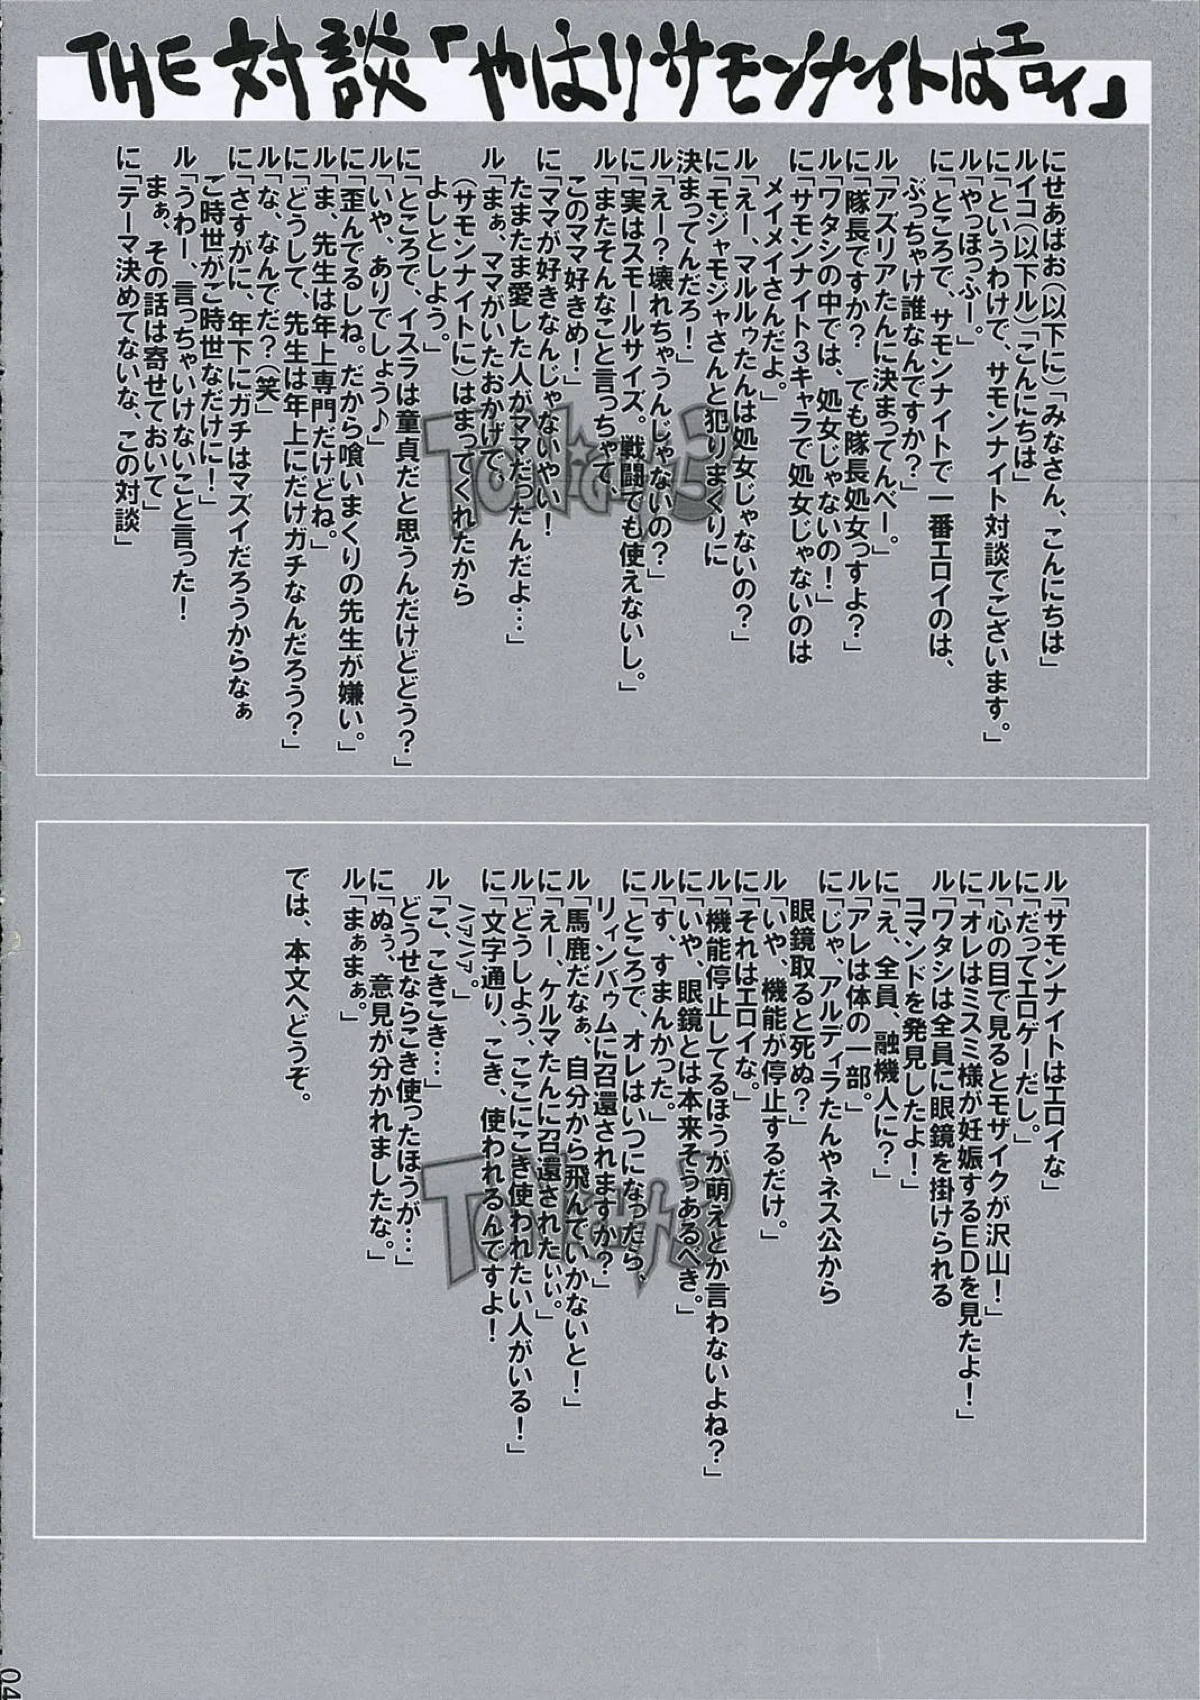 THE 対談「やはりサモンナイトはエロイ」
にせあばお(以下に)「みなさん、こんにちは」
ルイコ(以下ル)「こんにちは」
に「というわけで、サモンナイト対談でございます。」
ル「やっほっふー。」
に「ところで、サモンナイトで一番エロイのは、
ぶっちゃけ誰なんですか?」
ル「アズリアたんに決まってんべー。」
に「隊長ですか? でも隊長処女っすよ?」
ル「ワタシの中では、処女じゃないの!」
に「サモンナイト3キャラで処女じゃないのは
メイメイさんだよ。」
ル「えー、マルルゥたんは処女じゃないの?」
に「モジャモジャさんと犯りまくりに
決まってんだろ!」
ル「えー?壊れちゃうんじゃないの?」
に「実はスモールサイズ。戦闘でも使えないし。」
ル「またそんなこと言っちゃて、
このママ好きめ!」
に「ママが好きなんじゃないやい!
たまたま愛した人がママだったんだよ…」
ル「まぁ、ママがいたおかげで、
(サモンナイトに)はまってくれたから
よしとしよう。」
に「ところで、イスラは童貞だと思うんだけどどう?」
ル「いや、ありでしょう♪」
に「歪んでるしね。だから喰いまくりの先生が嫌い。」
ル「ま、先生は年上専門だけどね。」
に「どうして、先生は年上にだけガチなんだろう?」
ル「な、なんでだ?(笑)」
に「さすがに、年下にガチはマズイだろうからなぁ
ご時世がご時世なだけに!」
ル「うわー、言っちゃいけないこと言った!
まぁ、その話は寄せておいて」
に「テーマ決めてないな、この対談」
ル「サモンナイトはエロイな」
に「だってエロゲーだし。」
ル「心の目で見るとモザイクが沢山!」
に「オレはミスミ様が妊娠するEDを見たよ!」
ル「ワタシは全員に眼鏡を掛けられる
コマンドを発見したよ!」
に「え、全員、融機人に?」
ル「アレは体の一部。」
に「じゃ、アルディラたんやネス公から
眼鏡取ると死ぬ?」
ル「いや、機能が停止するだけ。」
に「それはエロイな。」
ル「機能停止してるほうが萌えとか言わないよね?」
に「いや、眼鏡とは本来そうあるべき。」
ル「す、すまんかった。」
に「ところで、オレはいつになったら、
リィンバゥムに召還されますか?」
ル「馬鹿だなぁ、自分から飛んでいかないと!」
に「えー、ケルマたんに召還されたいぃ。」
ル「どうしよう、ここにこき使われたい人がいる!」
に「文字通り、こき、使われるんですよ!
ハァハァ。」
ル「こ、こきこき…」
どうせならこき使ったほうが…」
に「ぬぅ、意見が分かれましたな。」
ル「まぁまぁ。」
では、本文へどうぞ。
04